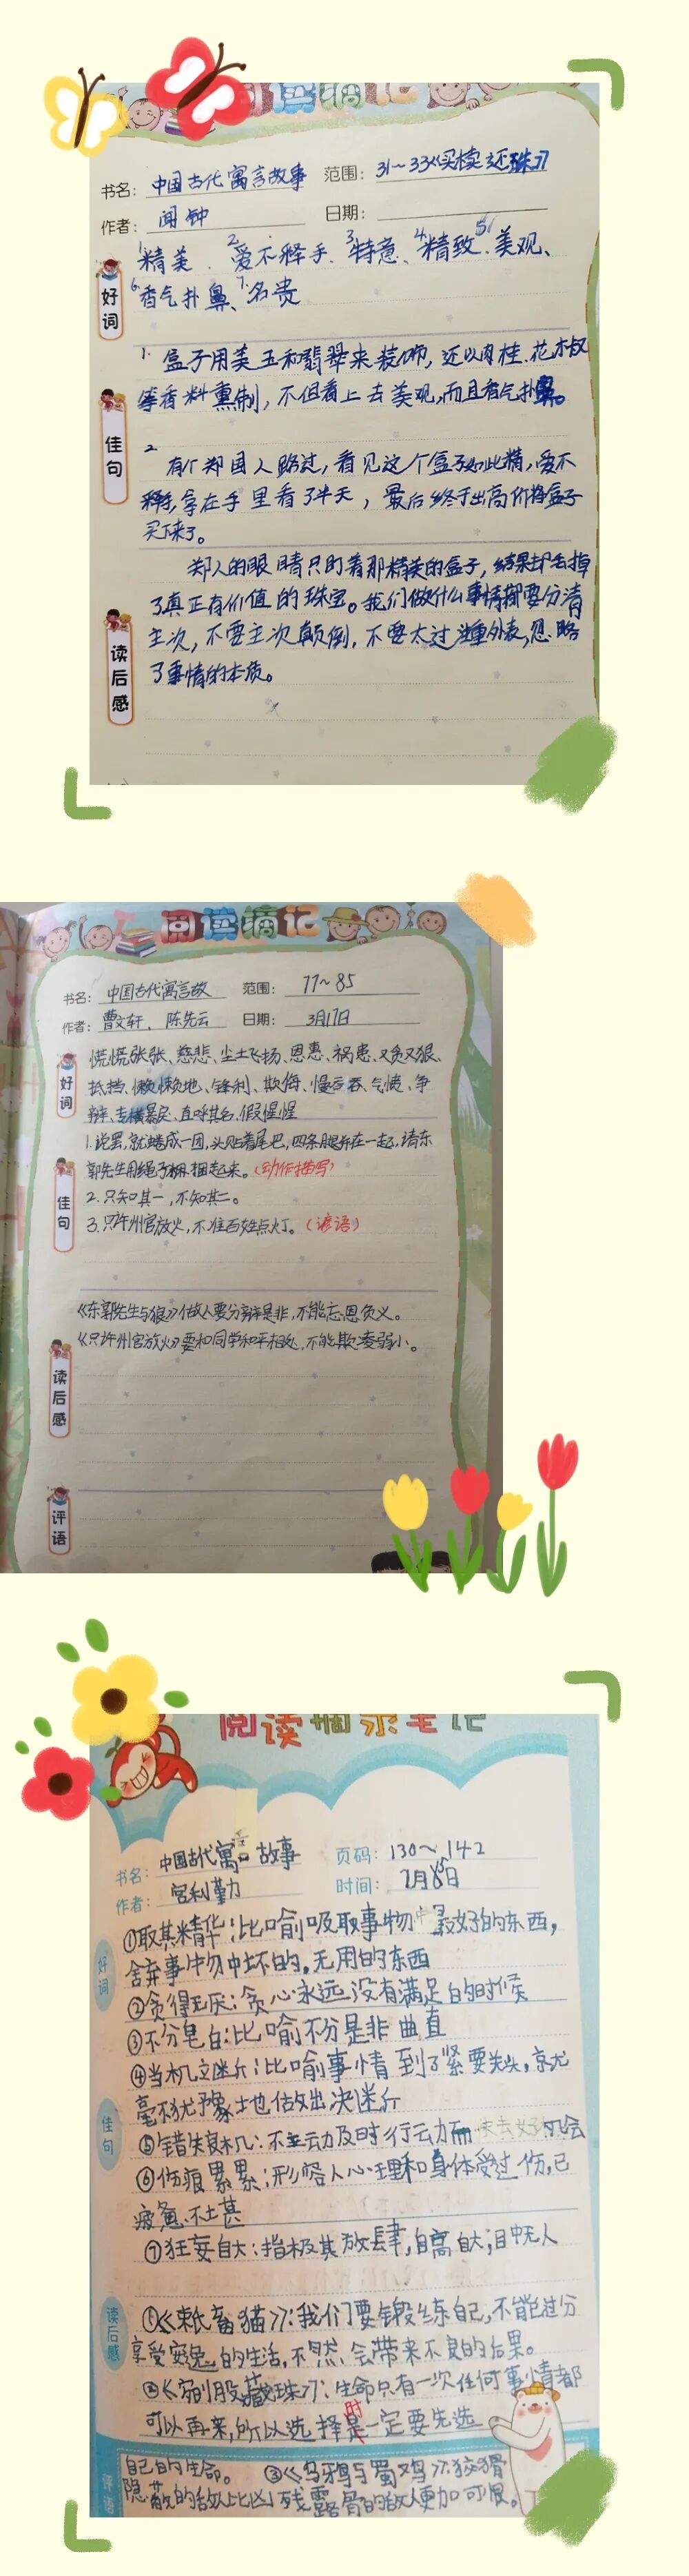 阅读摘记
书名：中国古代寓言故事 范围：31～33《买椟还珠》
作者：闻钟 日期：
好词
1精美、2爱不释手、3特意、4精致、5美观、
6香气扑鼻、7名贵
佳句
1.盒子用美玉和翡翠来装饰，还以肉桂、花椒
等香料熏制，不但看上去美观，而且香气扑鼻。
2.有个郑国人路过，看见这个盒子如此精，爱不
释手，拿在手里看了半天，最后终于出高价将盒子
买下来了。
读后感
郑人的眼睛只盯着那精美的盒子，结果却丢掉
了真正有价值的珠宝。我们做什么事情都要分清
主次，不要主次颠倒，不要太过注重外表，忽略
了事情的本质。
阅读摘记
书名：中国古代寓言故 范围：77～85
作者：曹文轩、陈先云 日期：3月17日
好词
慌慌张张、慈悲、尘土飞扬、恩惠、祸患、又贪又狠、
抵挡、懒懒地、锋利、欺侮、慢吞吞、气愤、争
辩、专横暴戾、直呼其名、假惺惺
佳句
1.说罢，就蜷成一团，头贴着尾巴，四条腿并在一起，请东
郭先生用绳子捆起来。（动作描写）
2.只知其一，不知其二。
3.只许州官放火，不准百姓点灯。（谚语）
读后感
《东郭先生与狼》做人要分辨是非，不能忘恩负义。
《只许州官放火》要和同学和平相处，不能欺凌弱小。
评语
阅读摘录笔记
书名：中国古代寓言故事 页码：130～142
作者：宫利勤力 时间：7月8日
好词
①取其精华：比喻吸取事物中最好的东西，
舍弃事物中坏的，无用的东西
②贪得无厌：贪心永远没有满足的时候
③不分皂白：比喻不分是非曲直
④当机立断：比喻事情到了紧要关头，
毫不犹豫地做出决断
佳句
⑤错失良机：不主动及时行动而失去好机会
⑥伤痕累累：形容人心理和身体受过伤，已
疲惫不堪
⑦狂妄自大：指极其放肆，自高自大，目中无人
读后感
①《束氏畜猫》：我们要锻练自己，不能过分
享受安逸的生活，不然会带来不良的后果。
②《剖股藏珠》：生命只有一次任何事情都
可以再来，所以选择时一定要先选
评语
自己的生命。 ③《乌鸦与蜀鸡》：狡猾
隐蔽的敌人比凶残露骨的敌人更加可恨。